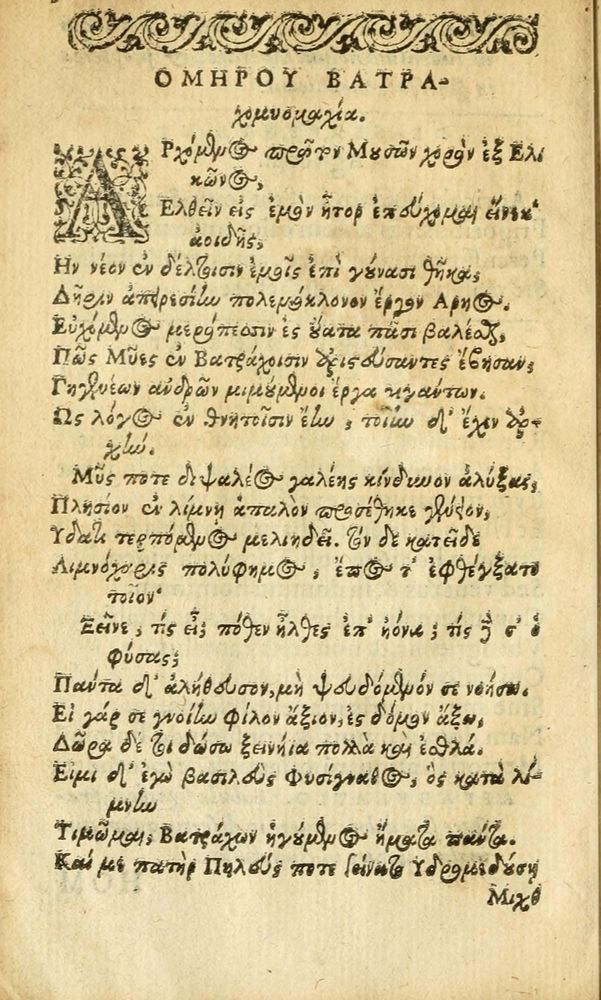 ΟΜΗΡΟΥ ΒΑΤΡΑ-
χομυομαχία.
ΑΡχόμενος πρῶτον Μουσῶν χορὸν ἐξ Ελι
κῶνος,
Ελθεῖν εἰς ἐμὸν ἦτορ ἐπεύχομαι εἵνεκ'
ἀοιδῆς,
Ην νέον ἐν δέλτοισιν ἐμοῖς ἐπὶ γούνασι θῆκα,
Δῆριν ἀπειρεσίην πολεμόκλονον ἔργον Αρηος.
Εὐχόμενος μερόπεσσιν ἐς οὔατα πᾶσι βαλέσθαι,
Πῶς Μῦες ἐν Βατράχοισιν ἀριστεύσαντες ἔβησαν,
Γηγενέων ἀνδρῶν μιμούμενοι ἔργα γιγάντων.
Ως λόγος ἐν θνητοῖσιν ἔην, τοίην δ' ἔχεν ἀρ-
χήν.
Μῦς ποτε διψαλέος γαλέης κίνδυνον ἀλύξας,
Πλησίον ἐν λίμνῃ ἁπαλὸν προσέθηκε γένειον,
Υδατι τερπόμενος μελιηδεῖ. τὸν δὲ κατεῖδε
Λιμνόχαρις πολύφημος, ἔπος τ' ἐφθέγξατο
τοῖον·
Ξεῖνε, τίς εἶ; πόθεν ἦλθες ἐπ' ἠόνα; τίς δέ σ' ὁ
φύσας;
Πάντα δ' ἀλήθευσον, μὴ ψευδόμενόν σε νοήσω.
Εἰ γάρ σε γνοίην φίλον ἄξιον, ἐς δόμον ἄξω,
Δῶρα δέ τοι δώσω ξεινήια πολλὰ καὶ ἐσθλά.
Εἰμὶ δ' ἐγὼ βασιλεὺς Φυσίγναθος, ὃς κατὰ λί-
μνην
Τιμῶμαι, Βατράχων ἡγούμενος ἤματα πάντα.
Καί με πατὴρ Πηλεύς ποτε γείνατο Υδρομεδούσῃ
Μιχθ